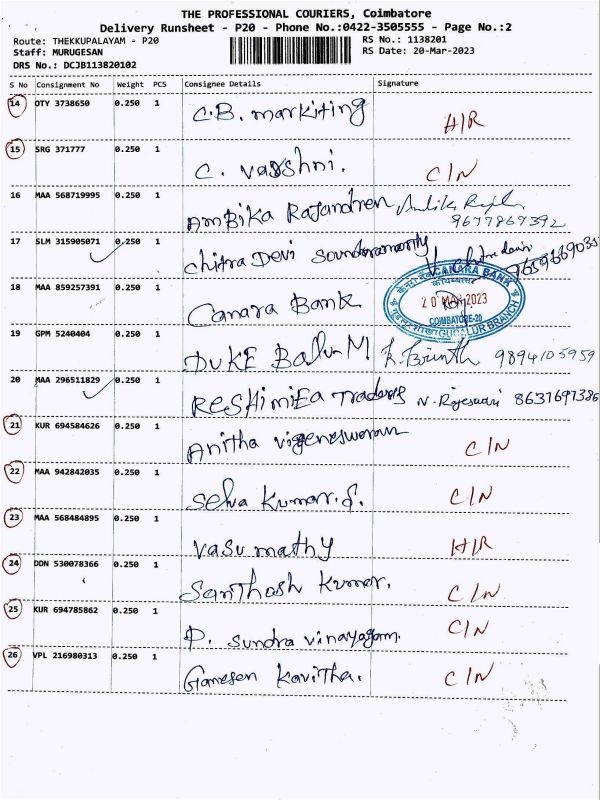 THE PROFESSIONAL COURIERS, Coimbatore
Delivery Runsheet - P20 - Phone No.:0422-3505555 - Page No.:2
Route: THEKKUPALAYAM - P20 RS No.: 1138201
Staff: MURUGESAN RS Date: 20-Mar-2023
DRS No.: DCJB113820102
S No Consignment No Weight PCS Consignee Details Signature
14 OTY 3738650 0.250 1 C.B. markiting H/R
15 SRG 371777 0.250 1 C. varshni. C/N
16 MAA 568719995 0.250 1 AmBika Rajandren 9677869392
17 SLM 315905071 0.250 1 Chitra Devi Soundaramorthy
18 MAA 859257391 0.250 1 Canara Bank CANARA BANK 20 MAR 2023 COIMBATORE-20 GUDALUR BRANCH
19 GPM 5240404 0.250 1 DUKE Balu M 9894105959
20 MAA 296511829 0.250 1 ReSHimiEa Traders N. Rajeswari 8637697386
21 KUR 694584626 0.250 1 Anitha vigeneswaran C/N
22 MAA 942842035 0.250 1 Selva Kumar. S. C/N
23 MAA 568484895 0.250 1 vasu mathy H/R
24 DDN 530078366 0.250 1 Santhosh Kumar. C/N
25 KUR 694785862 0.250 1 P. Sundra vinayagam. C/N
26 VPL 216980313 0.250 1 Ganesen Kavitha. C/N